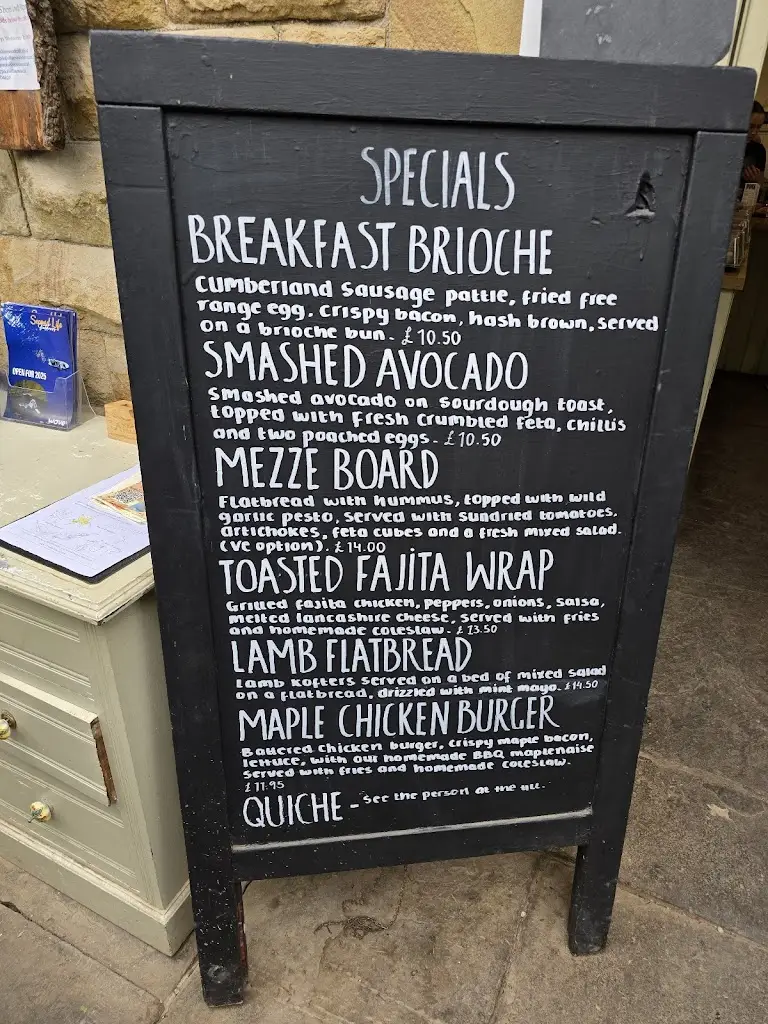 SPECIALS
BREAKFAST BRIOCHE
Cumberland Sausage pattie, fried free
range egg, crispy bacon, hash brown, served
on a brioche bun. £10.50
SMASHED AVOCADO
Smashed avocado on Sourdough toast,
topped with fresh crumbled feta, chillis
and two poached eggs - £10.50
MEZZE BOARD
Flatbread with hummus, topped with wild
garlic pesto, served with sundried tomatoes,
artichokes, feta cubes and a fresh mixed salad.
(ve option). £14.00
TOASTED FAJITA WRAP
Grilled fajita chicken, peppers, onions, salsa,
melted lancashire cheese, served with fries
and homemade coleslaw. £13.50
LAMB FLATBREAD
Lamb Kofters served on a bed of mixed salad
on a flatbread, drizzled with mint mayo. £14.50
MAPLE CHICKEN BURGER
Battered chicken burger, crispy maple bacon,
lettuce, with our homemade BBQ maplenaise
served with fries and homemade coleslaw.
£11.95
QUICHE - See the person at the till.
OPEN FOR 2025